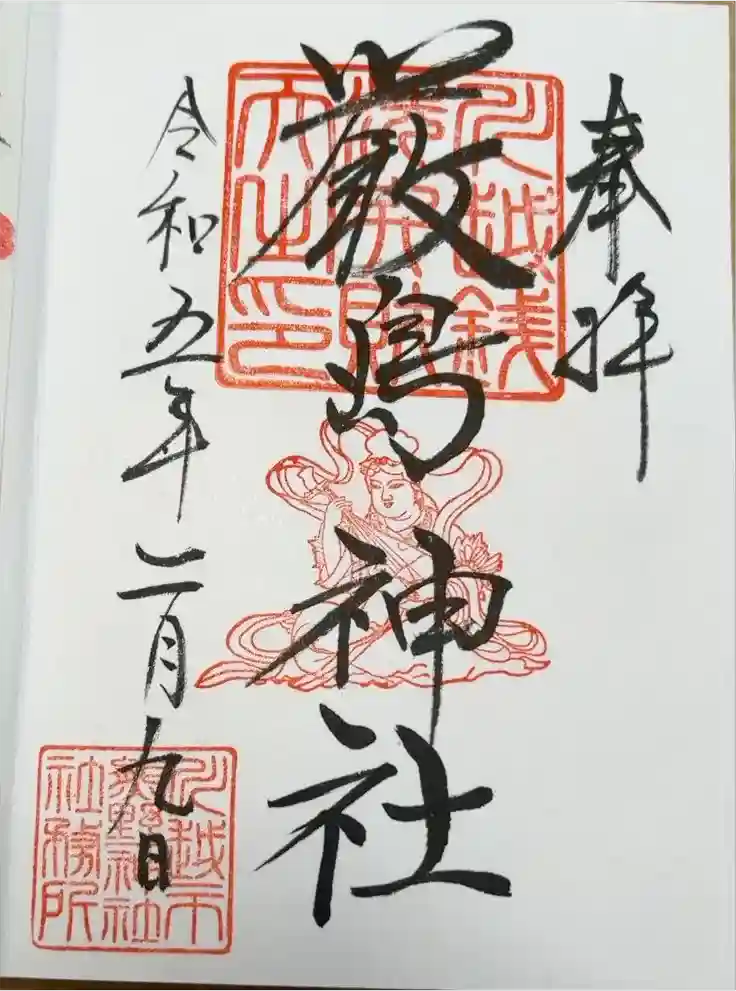 奉拝
川越銭
洗弁財
天之印
厳島神社
令和五年二月九日
川越市
熊野神社
社務所